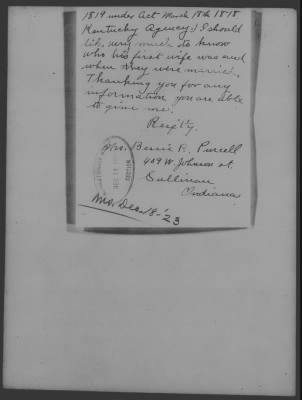 1819 under Act March 18th 1818
Kentucky Agency) I should
like very much to know
who his first wife was and
when they were married.
Thanking you for any
information you are able
to give me.
Resp'ty.
Mrs. Bessie R. Purcell
409 W. Johnson st.
Sullivan
Indiana
Dec. 18-'23